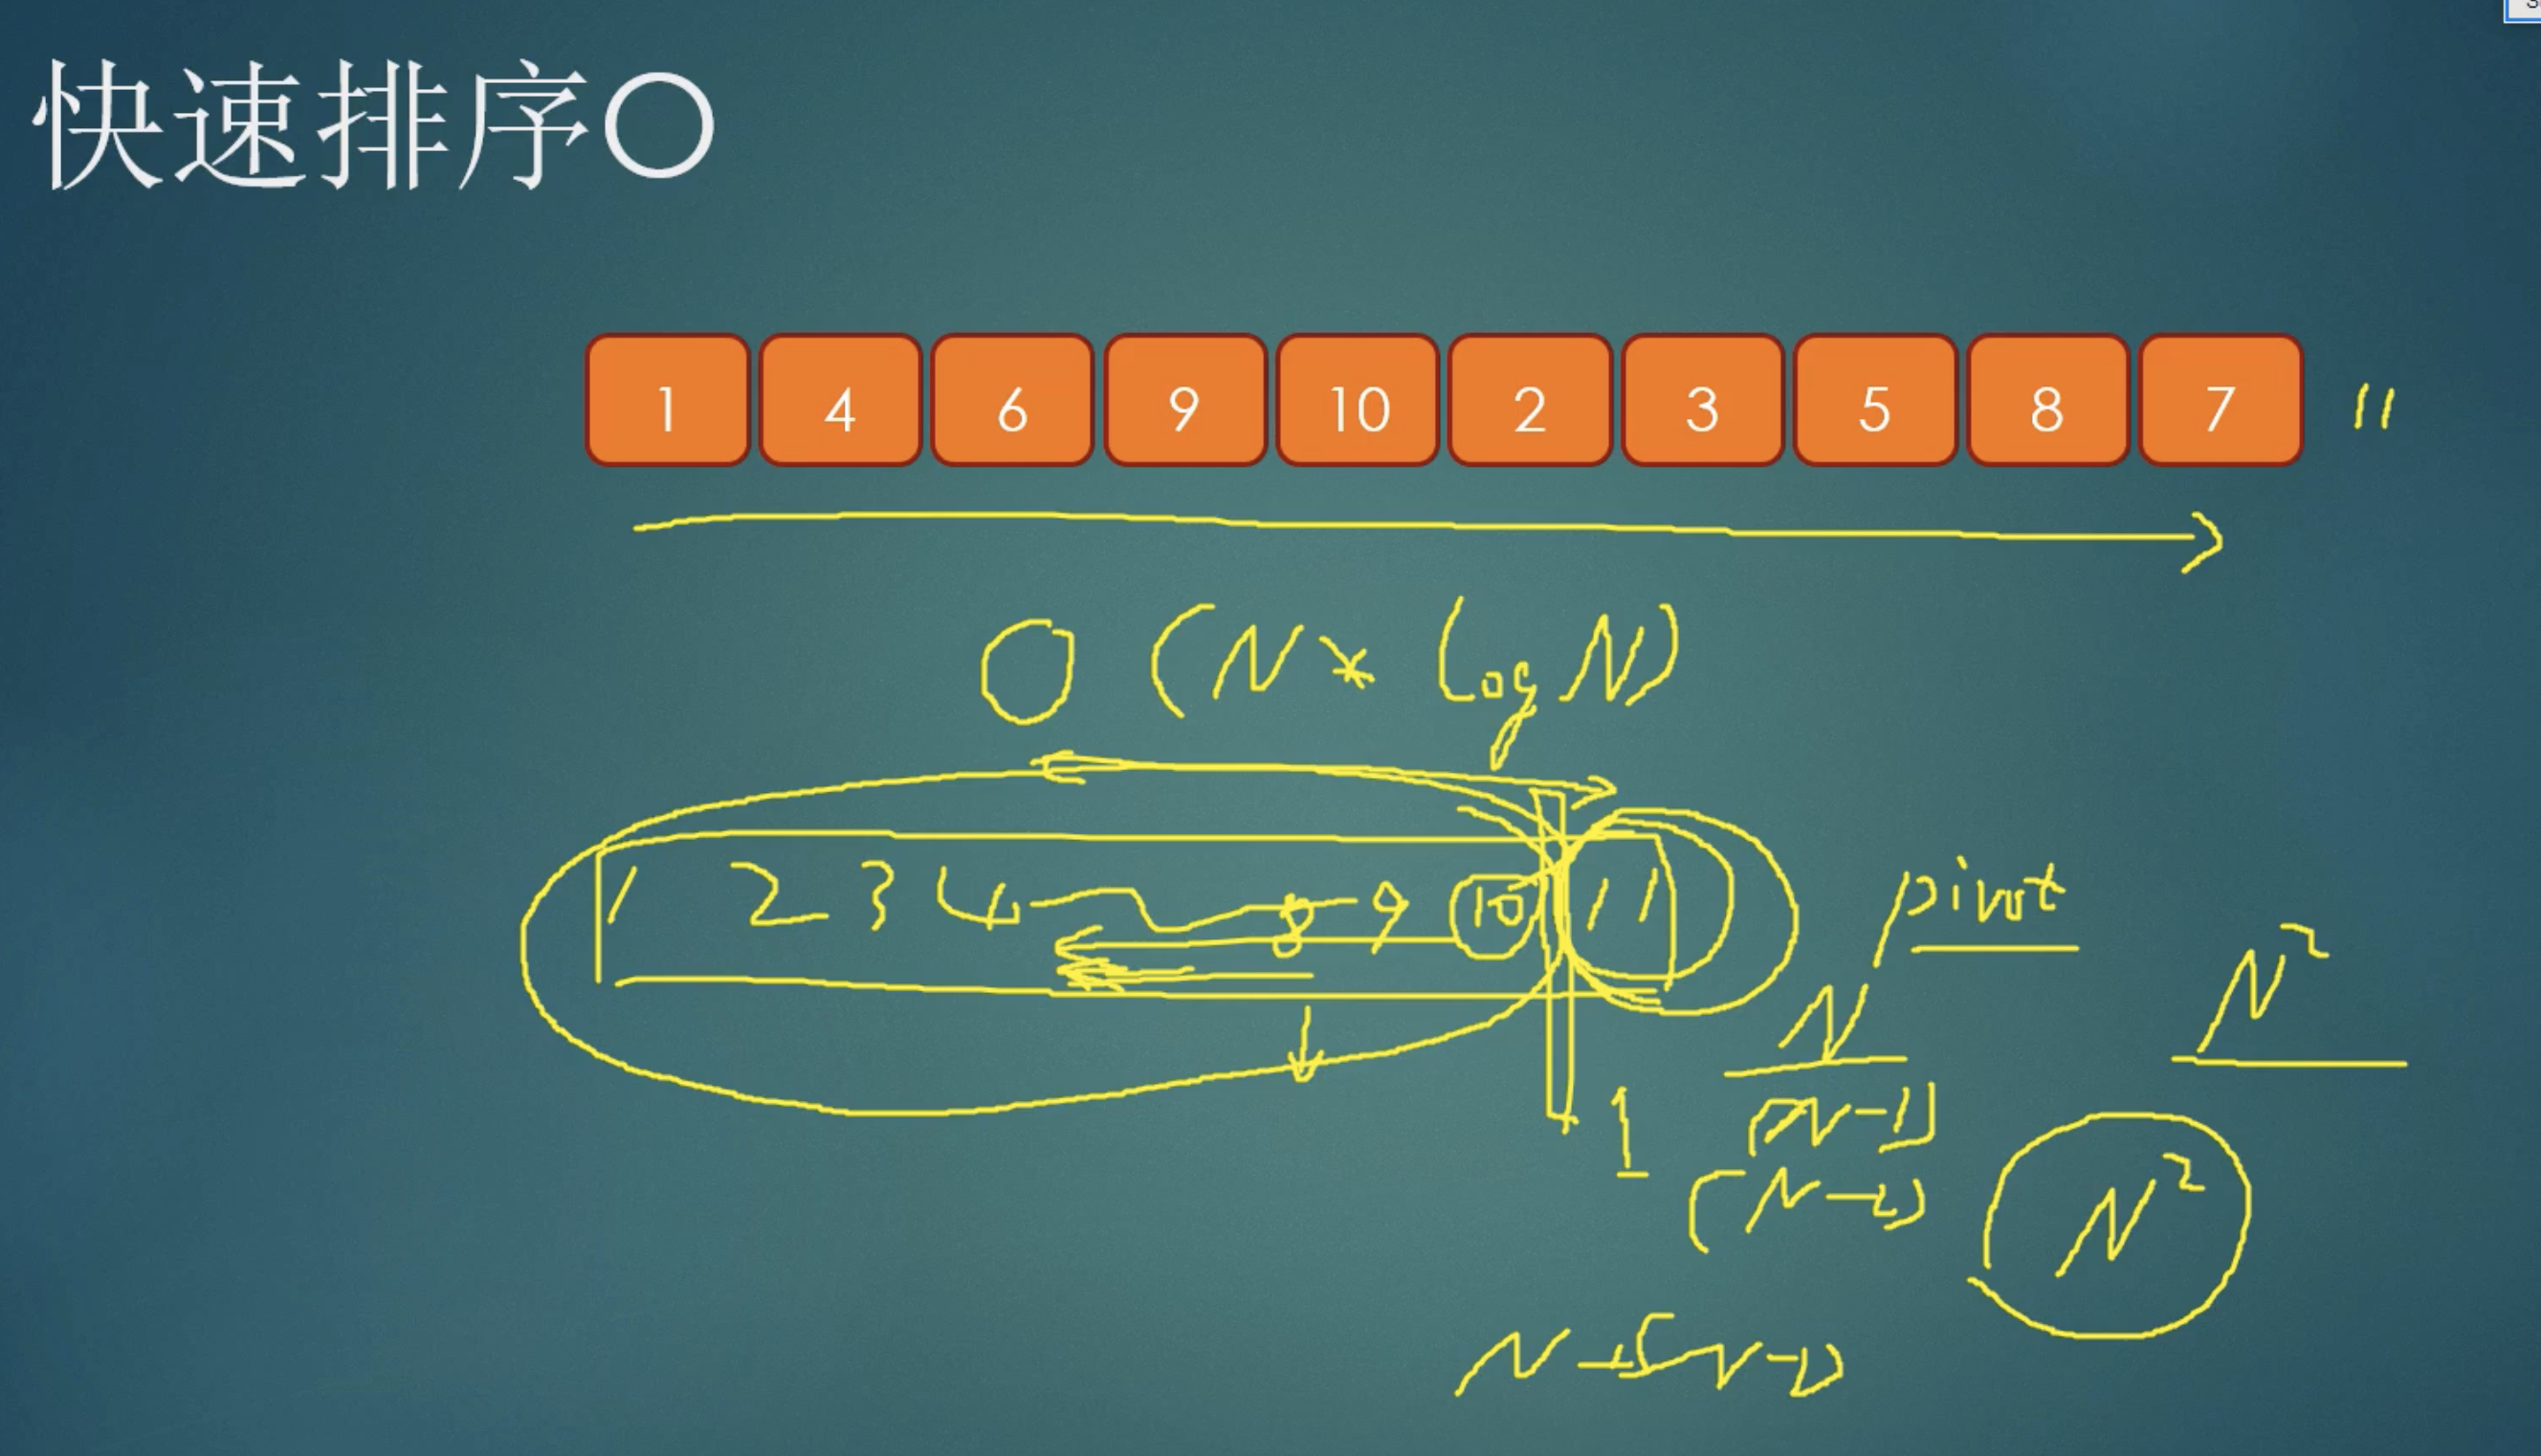 快速排序〇
1 4 6 9 10 2 3 5 8 7 11
O (N * Log N)
1 2 3 4 8 9 10 11
pivot
N
N²
1
(N-1)
(N-2)
N²